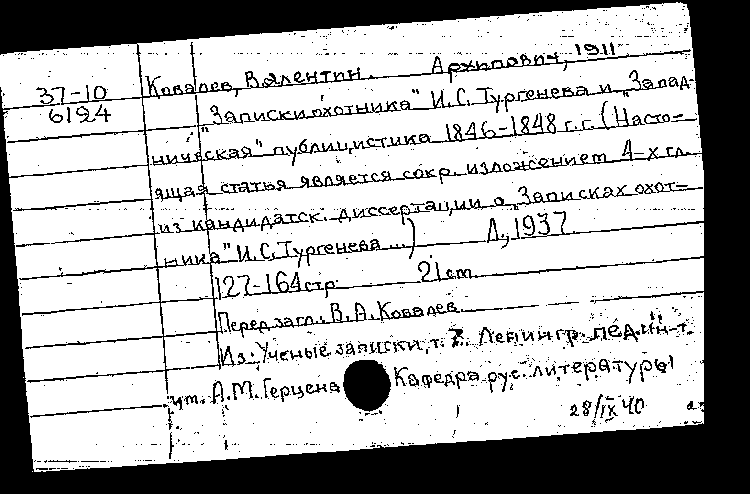 37-10
6124
Ковалев, Валентин. Архипович, 1911
"Записки охотника" И.С. Тургенева и "Запад-
ническая" публицистика 1846-1848 г.г. (Насто-
ящая статья является сокр. изложением 4-х гл.
из кандидатск. диссертации о "Записках охот-
ника" И.С. Тургенева ...) Л., 1937
127-164 стр. 21 cm.
Перед загл.: В.А. Ковалев
Из: Ученые записки, т. 7. Ленингр. пед. ин-т.
им. А.М. Герцена Кафедра рус. литературы
28/IX 40